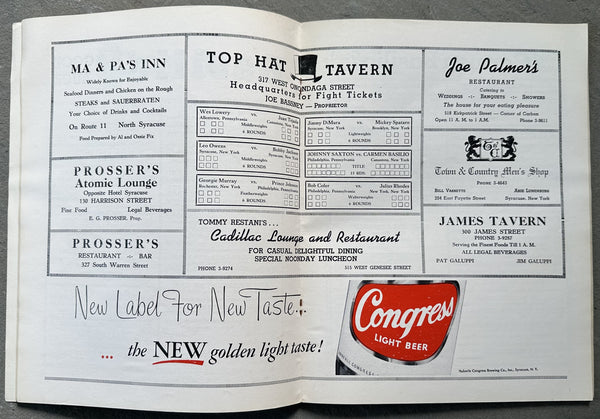 MA & PA'S INN
Widely Known for Enjoyable
Seafood Dinners and Chicken on the Rough
STEAKS and SAUERBRATEN
Your Choice of Drinks and Cocktails
On Route 11 North Syracuse
Food Prepared by Al and Ossie Fix
PROSSER'S
Atomic Lounge
Opposite Hotel Syracuse
130 HARRISON STREET
Fine Food Legal Beverages
E. G. PROSSER, Prop.
PROSSER'S
RESTAURANT -:- BAR
327 South Warren Street
TOP HAT TAVERN
317 WEST ONONDAGA STREET
Headquarters for Fight Tickets
JOE BASSNEY — PROPRIETOR
Wes Lowery vs.
Allentown, Pennsylvania Syracuse, New York
Middleweights
6 ROUNDS
Leo Owens vs. Bobby
Syracuse, New York
Middleweights
6 ROUNDS
George Murray vs. Prince Johnson
Rochester, New York
Featherweights
6 ROUNDS
Jimmy DeMura vs. Mickey Spataro
Syracuse, New York Brooklyn, New York
Lightweights
6 ROUNDS
JOHNNY SAXTON vs. CARMEN BASILIO
Philadelphia, Pennsylvania Canastota, New York
TITLE
15 RDS
Bob Color vs. Julius Rhodes
Philadelphia, Pennsylvania Syracuse, New York
Welterweights
6 ROUNDS
TOMMY RESTANI'S...
Cadillac Lounge and Restaurant
FOR CASUAL DELIGHTFUL DINING
SPECIAL NOONDAY LUNCHEON
PHONE 3-9274 515 WEST GENESEE STREET
Joe Palmer's
RESTAURANT
Catering to
WEDDINGS -:- BANQUETS -:- SHOWERS
The house for your eating pleasure
518 Kirkpatrick Street - Corner of Carbon
Open 11 A. M. to 1 A. M. Phone 3-9611
T & C
Town & Country Men's Shop
PHONE 3-4643
BILL VARSETTY
204 East Fayette Street Syracuse, New York
JAMES TAVERN
300 JAMES STREET
PHONE 3-9287
Serving the Finest Foods Till 1 A. M.
ALL LEGAL BEVERAGES
PAT GALUPPI JIM GALUPPI
New Label For New Taste...
... the NEW golden light taste!
Congress
LIGHT BEER
Haberle Congress Brewing Co., Inc., Syracuse, N. Y.